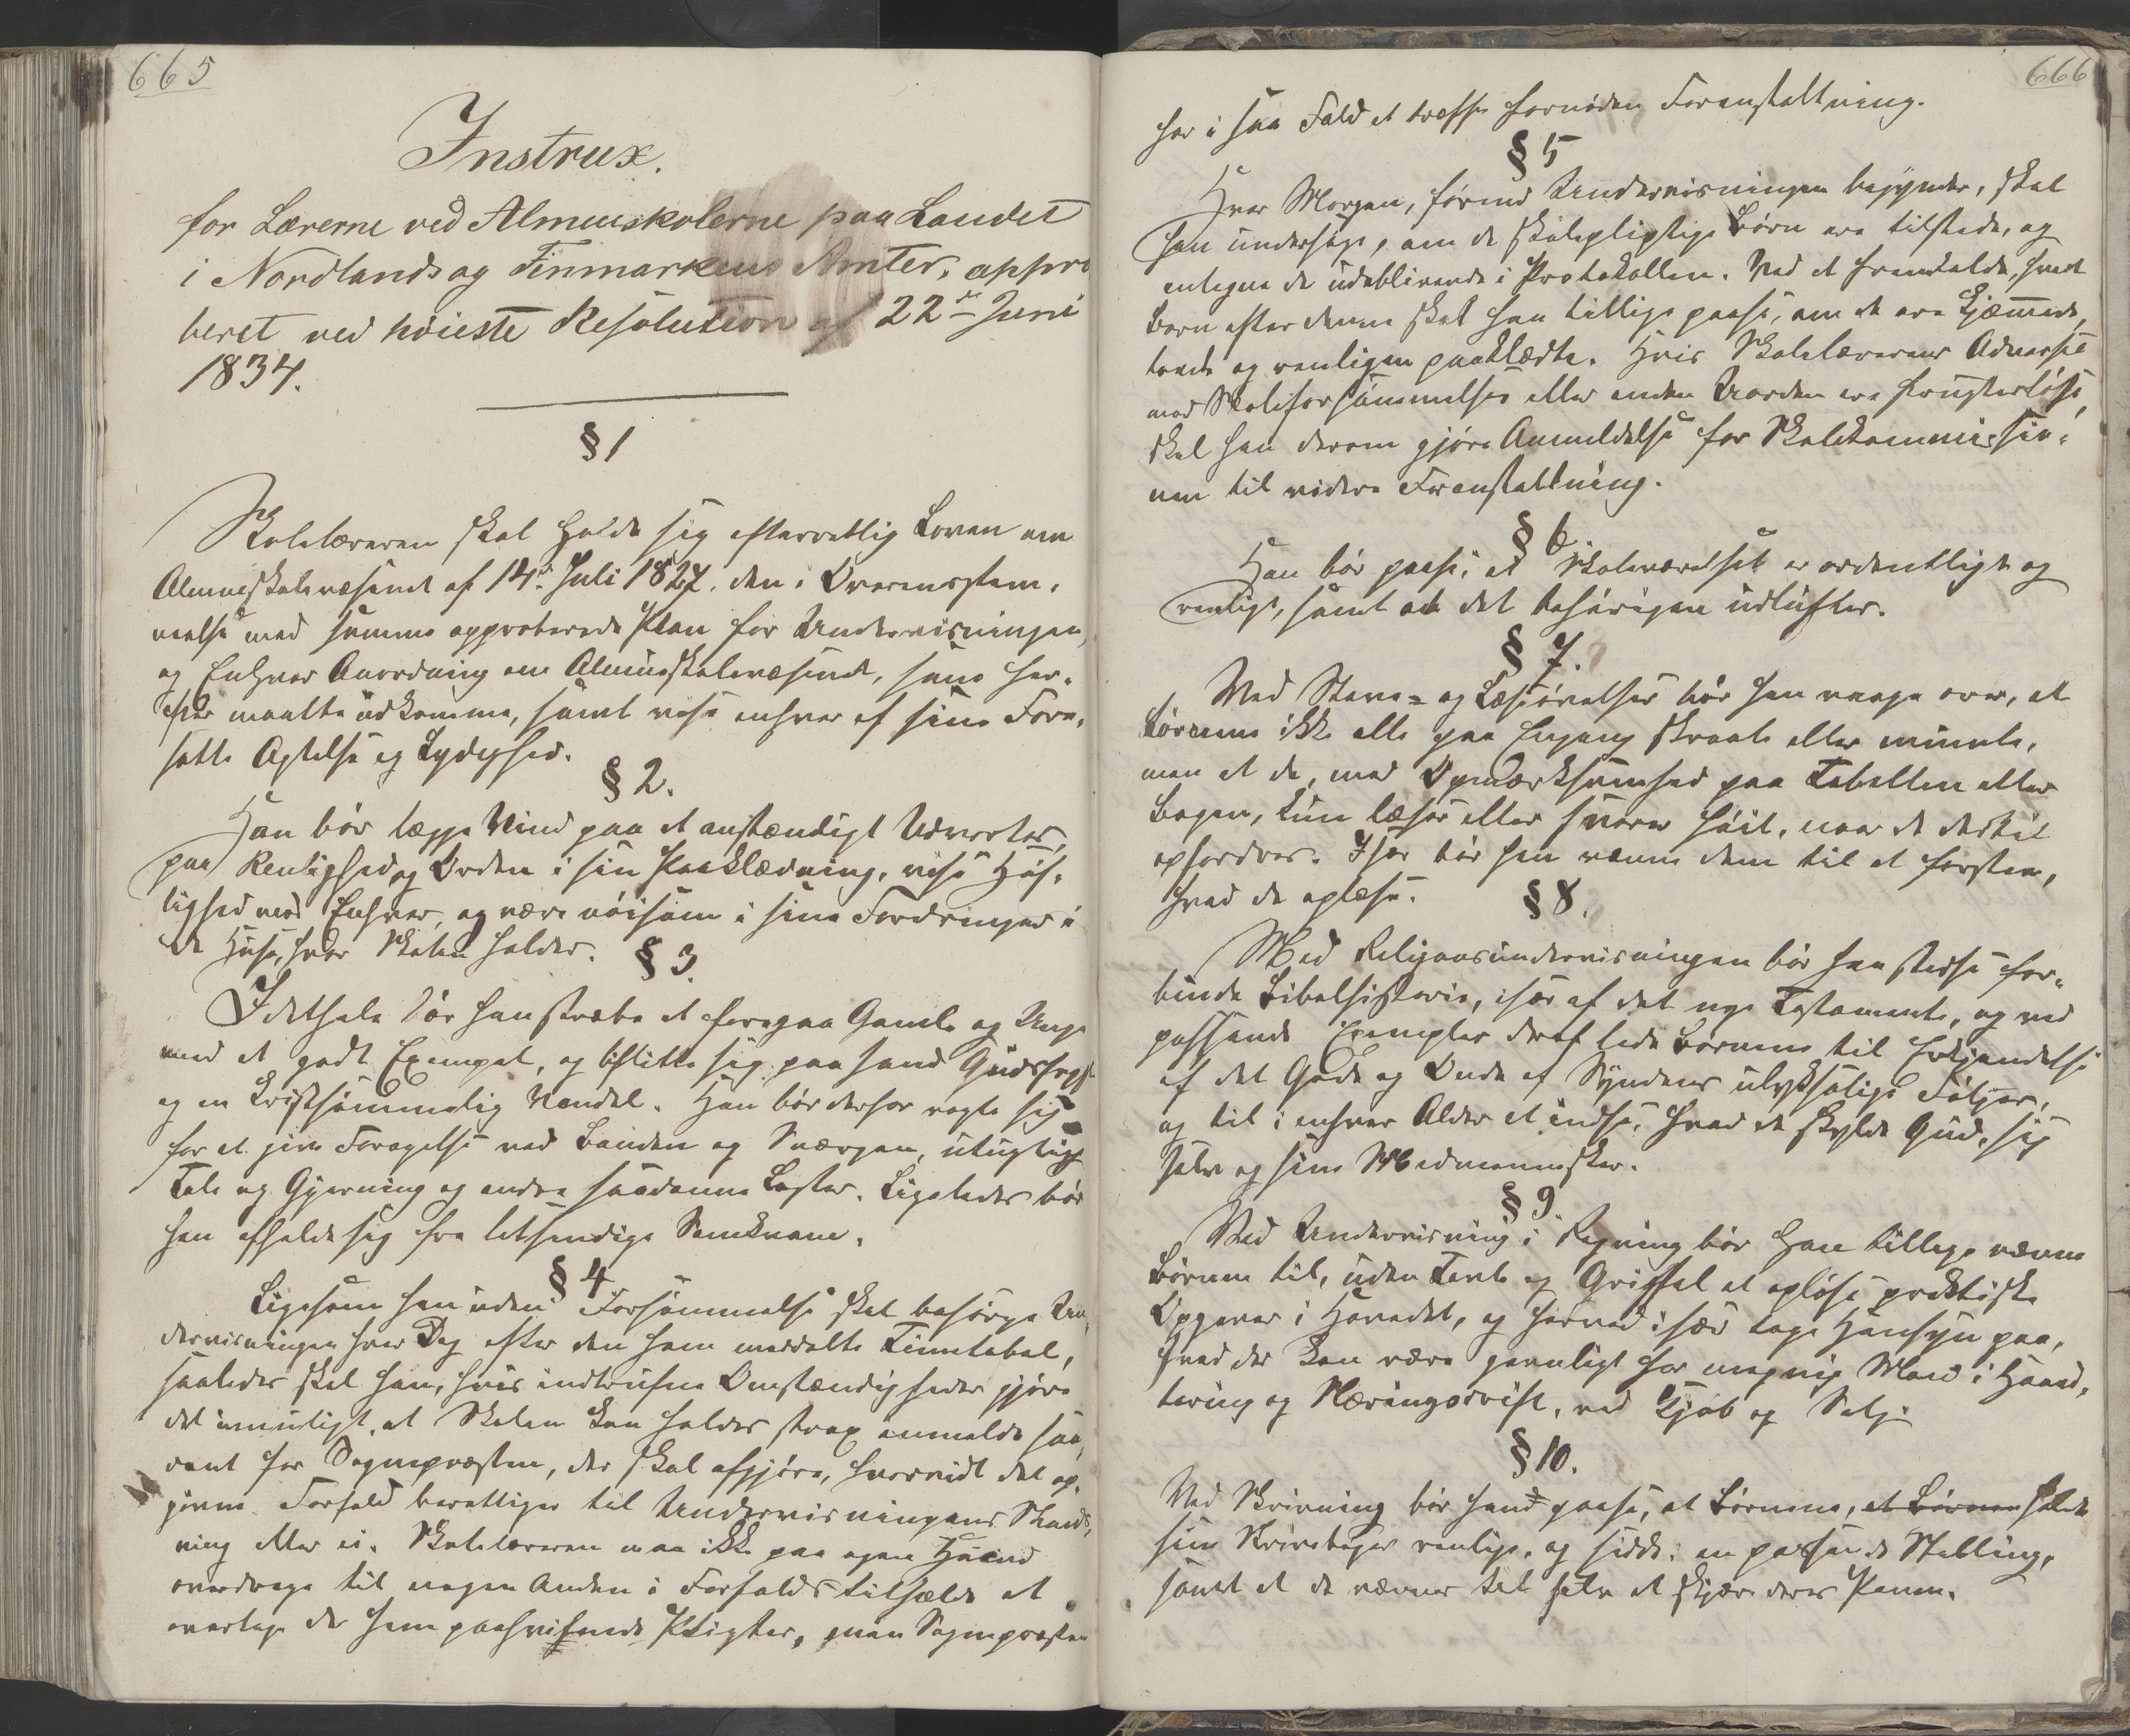 665
Instrux.
for Lærerne ved Almueskolerne paa Landet
i Nordlands og Finmarkens Amter, appro
beret ved høieste Resolution af 22de Juni
1834.
§ 1
Skolelæreren skal holde sig efterrettelig Loven om
Almueskolevæsenet af 14de Juli 1827, den i Overensstem-
melse med samme approberede Plan for Undervisningen,
og Enhver Anordning om Almueskolevæsenet, som her-
efter maatte udkomme, samt vise enhver af sine Fore-
satte Agtelse og Lydighed.
§ 2.
Han bør lægge Vind paa et anstændigt Udvortes,
paa Renlighed og Orden i sin Paaklædning, vise Høf-
lighed mod Enhver, og være nøisom i sine Fordringer i
de Huse, hvor Skolen holdes.
§ 3.
Idethele bør han stræbe at foregaa Gamle og Unge
med et godt Exempel, og beflitte sig paa sand Gudsfrygt
og en Kristsømmelig Vandel. Han bør derfor vogte sig
for at give Forargelse ved Banden og Sværgen, utugtig
Tale og Gjerning og andre saadanne Laster. Ligeledes bør
han afholde sig fra letsindige Samkvem.
§ 4
Ligesom han uden Forsømmelse skal besørge Un-
dervisningen hver Dag efter den ham meddelte Timetabel,
saaledes skal han, hvis indtrufne Omstændigheder gjøre
det umuligt, at Skolen kan holdes strax anmelde saa-
dant for Sognepræsten, der skal afgjøre, hvorvidt det op-
givne Forfald berettiger til Undervisningens Stands-
ning eller ei. Skolelæreren maa ikke paa egen Haand
overdrage til nogen Anden i Forfaldstilfælde at
overtage de ham paahvilende Pligter, men Sognepræsten
666
har i saa Fald at træffe fornøden Foranstaltning.
§ 5
Hver Morgen, førend Undervisningen begynder, skal
han undersøge, om de skolepligtige Børn ere tilstede, og
antegne de udeblivende i Protokollen. Ved at fremkalde, hvert
Barn efter denne skal han tillige paase, om de ere kjæmmede,
toede og renligen paaklædte. Hvis Skolelærerens Advarsel
mod Skoleforsømmelser eller anden Uorden ere frugtesløse,
skal han derom gjøre Anmeldelse for Skolekommissio-
nen til videre Foranstaltning.
§ 6
Han bør paase, at Skoleværelset er ordentligt og
renligt, samt at det behørigen udluftes.
§ 7.
Ved Stave- og Læseøvelser bør han vaage over, at
Børnene ikke alle paa Engang skraale eller mumle,
men at de, med Opmærksomhed paa Tabellen eller
Bogen, kun læse eller svare høit, naar de dertil
opfordres. Især bør han vænne dem til at forstaa,
hvad de oplæse.
§ 8.
Med Religionsundervisningen bør han stedse for-
binde Bibelhistorie, især af det nye Testamente, og ved
passende Exempler deraf lede Børnene til Erkjendelse
af det Gode og Onde af Syndens ulyksalige Følger,
og til i enhver Alder at indse, hvad de skylde Gud, sig
selv og sine Medmennesker.
§ 9
Ved Undervisning i Regning bør Han tillige vænne
Børnene til, uden Tavle og Griffel at opløse praktiske
Opgaver i Hovedet, og herved især tage Hensyn paa,
hvad der kan være gavnligt for menig Mand i Haand-
tering og Næringsdrift, ved Kjøb og Salg.
§ 10.
Ved Skrivning bør han paase, at Børnene, at Børnene holde
sine Skrivebøger renlige, og sidde i en passende Stilling,
samt at de vænnes til selv at skjære deres Penne.